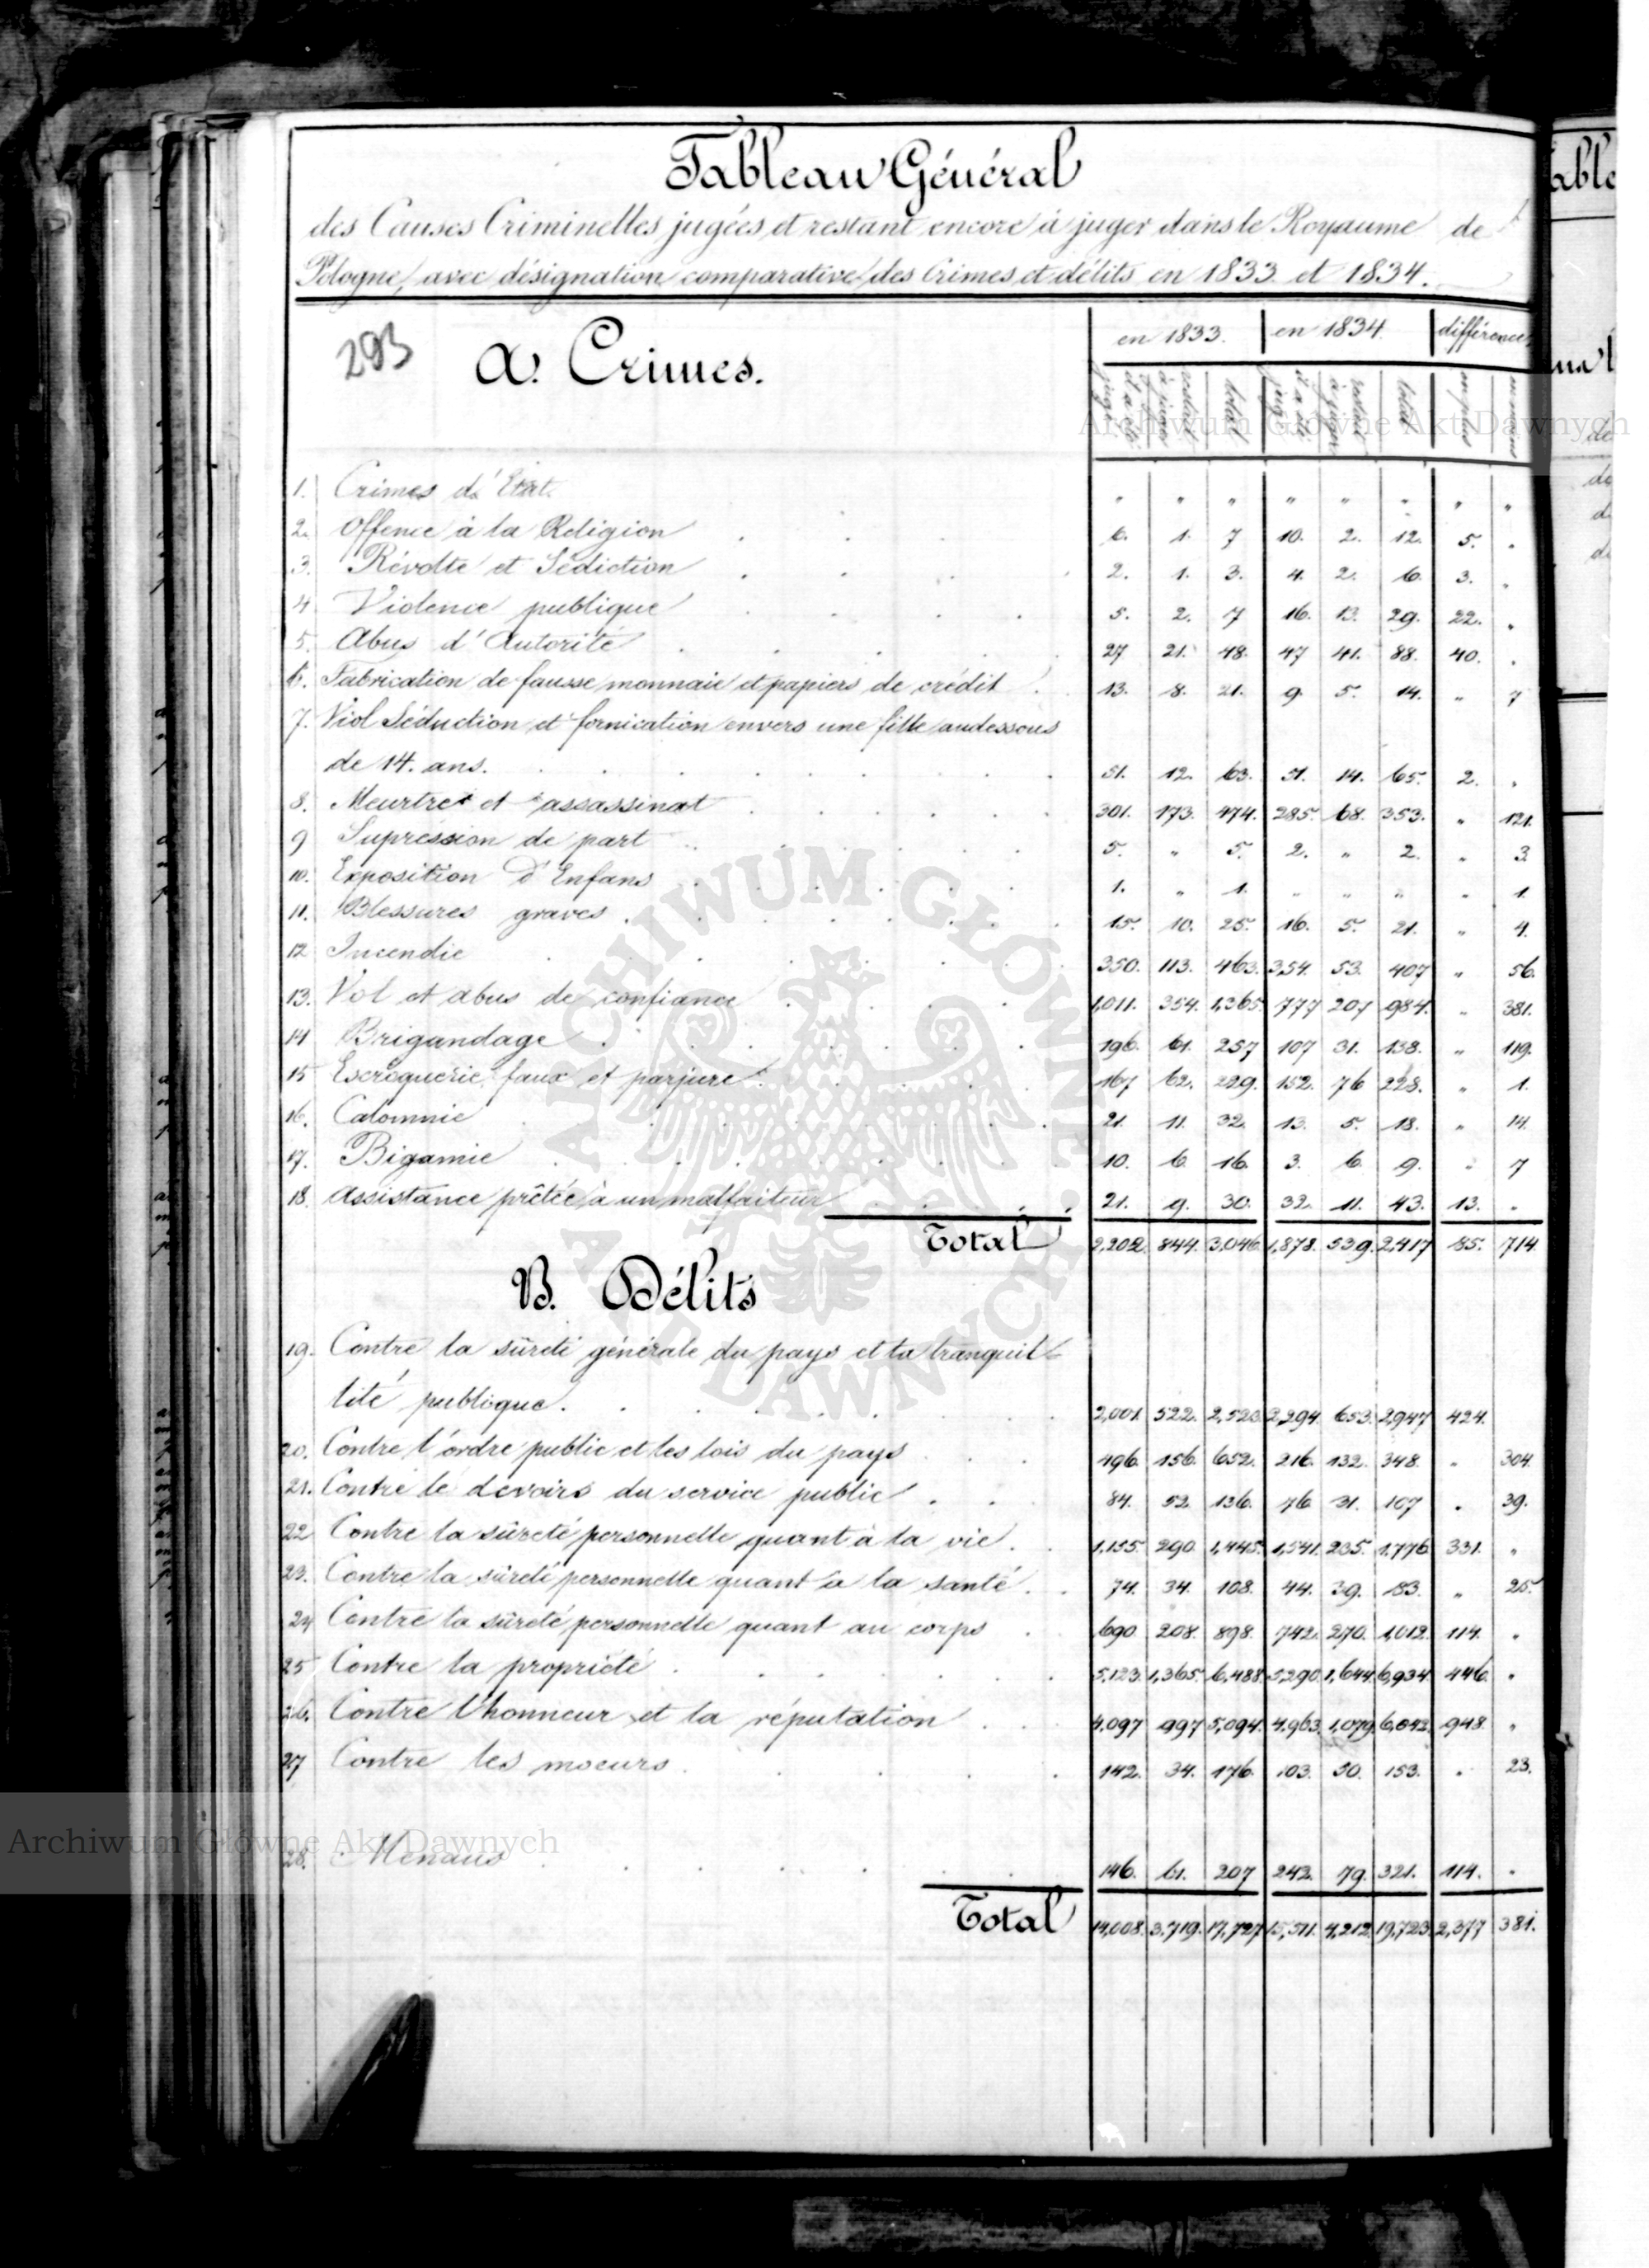 Tableau Général
des Causes Criminelles jugées et restant encore à juger dans le Royaume de
Pologne, avec désignation comparative des Crimes et délits en 1833 et 1834.
293
A. Crimes.
en 1833. en 1834. différence
jugé restant à juger total jugé restant à juger total en plus en moins
1. Crimes d'Etat. " " " " " " " "
2. Offence à la Religion 6. 1. 7 10. 2. 12. 5. "
3. Révolte et Sédiction 2. 1. 3. 4. 2. 6. 3. "
4 Violence publique 5. 2. 7 16. 13. 29. 22. "
5. Abus d'Autorité 27 21. 48. 47 41. 88. 40. "
6. Fabrication de fausse monnaie et papiers de crédit 13. 8. 21. 9. 5. 14. " 7
7. Viol Séduction et fornication envers une fille audessous
de 14. ans. 51. 12. 63. 51. 14. 65. 2. "
8. Meurtre et assassinat 301. 173. 474. 285. 68. 353. " 121.
9 Supression de part 5. " 5. 2. " 2. " 3.
10. Exposition d'Enfans 1. " 1. " " " " 1.
11. Blessures graves 15. 10. 25. 16. 5. 21. " 4.
12 Incendie 350. 113. 463. 354. 53. 407 " 56.
13. Vol et abus de confiance 1,011. 354. 1,365. 777 207 984. " 381.
14 Brigandage 196. 61. 257 107 31. 138. " 119.
15 Escroquerie, faux et parjure 167 62. 229. 152. 76 228. " 1.
16. Calomnie 21. 11. 32. 13. 5. 18. " 14.
17. Bigamie 10. 6. 16. 3. 6. 9. " 7
18. Assistance prêtée à un malfaiteur 21. 9. 30. 32. 11. 43. 13. "
Total 2,202. 844. 3,046. 1,878. 539. 2,417 85. 714.
B. Délits
19. Contre la sûreté générale du pays et la tranquil
lité publique. 2,001. 522. 2,523. 2,294. 653. 2,947 424.
20. Contre l'ordre public et les lois du pays 496. 156. 652. 216. 132. 348. " 304.
21. Contre le devoirs du service public 84. 52. 136. 76. 31. 107 " 29.
22 Contre la sûreté personnelle quant à la vie. 1,155. 290. 1,445. 1,541. 235. 1,776. 331. "
23. Contre la sûreté personnelle quant à la santé. 74. 34. 108. 44. 39. 83. " 25.
24 Contre la sûreté personnelle quant au corps 690. 208. 898. 742. 270. 1,012. 114. "
25 Contre la propriété 5,123. 1,365. 6,488. 5,290. 1,644. 6,934. 446. "
26. Contre l'honneur et la réputation 4,097 997 5,094. 4,963. 1,079. 6,042. 948. "
27 Contre les moeurs. 142. 34. 176. 103. 50. 153. " 23.
28. Menaus 146. 61. 207 242. 79. 321. 114. "
Total 14,008. 3,719. 17,727 15,511. 4,212. 19,723. 2,377 381.
Archiwum Główne Akt Dawnych
Archiwum Główne Akt Dawnych
ARCHIWUM GŁÓWNE AKT DAWNYCH